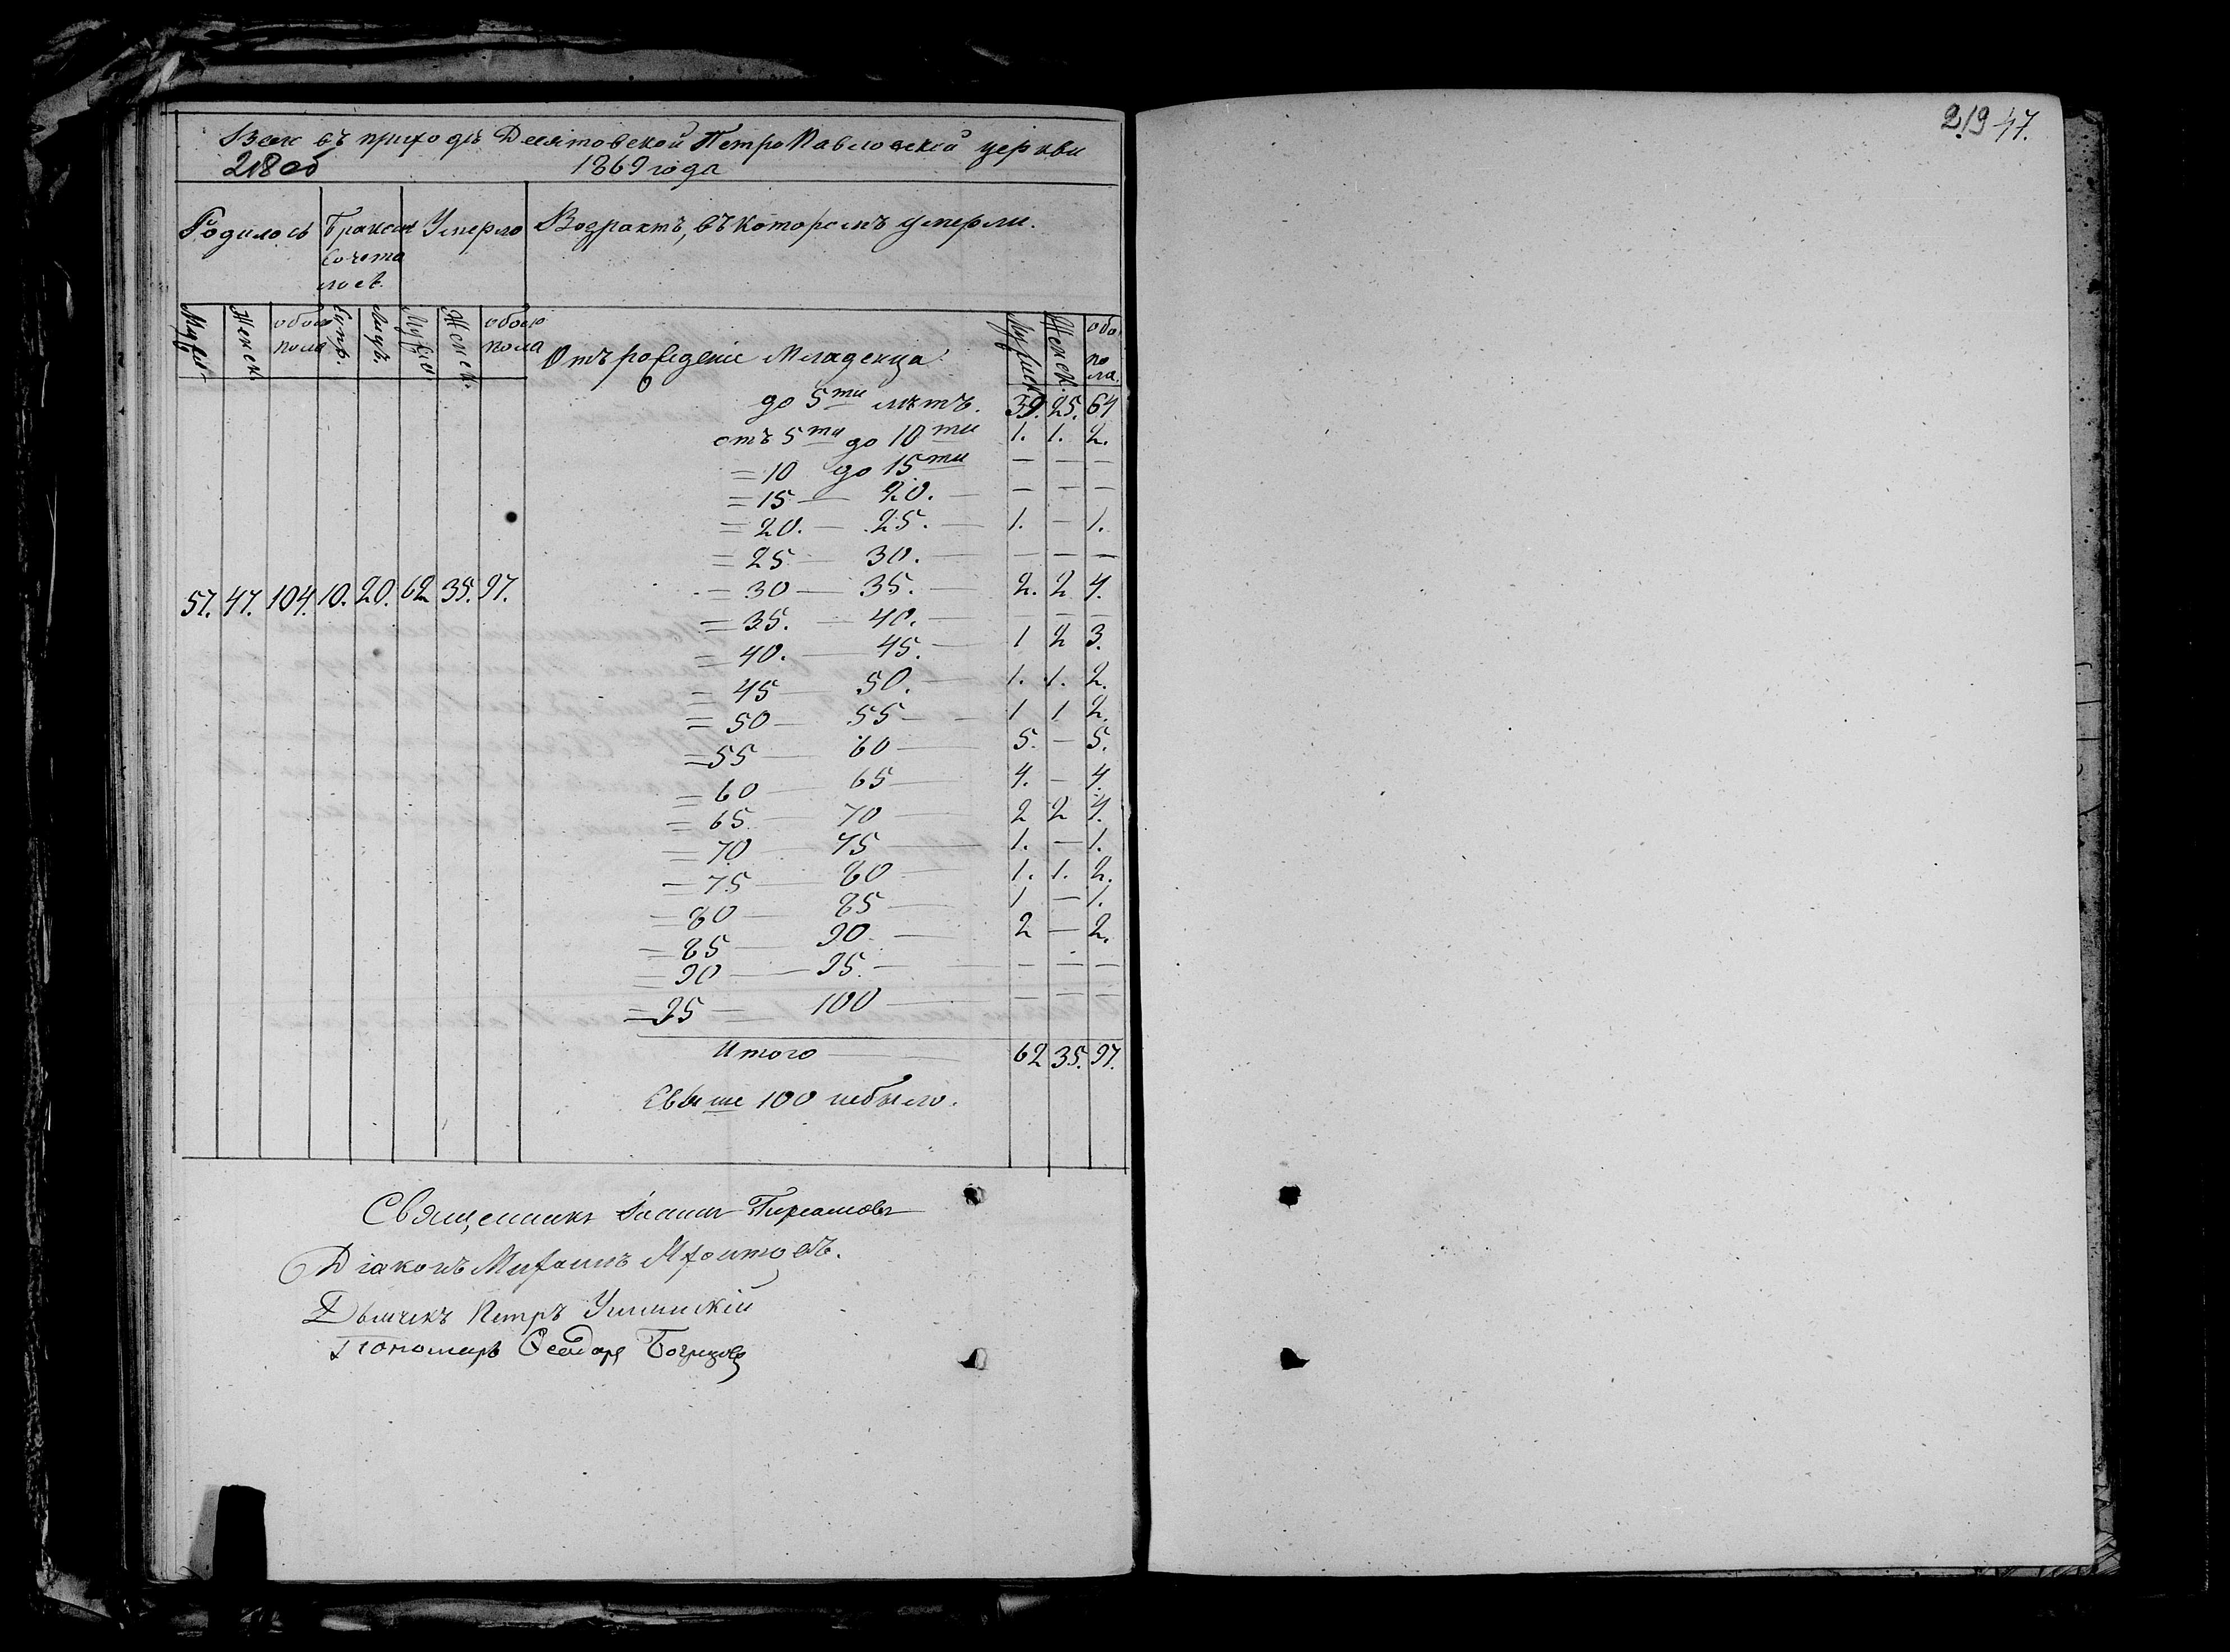 въ приходѣ Десятовской Петро Павловской церкви
218 об
1869 года
Родилось Бракомъ Умерло Возрастъ, въ которомъ умерли.
сочета
лось.
Мужск. Женск. обоего пола Супр. Лицъ. Мужск. Женск. обоего пола
Отъ рожденіе Младенца
Мужск. Женск. обо. по ла.
до 5ти лѣтъ. 39. 25. 64
отъ 5ти до 10ти 1. 1. 2.
= 10 до 15ти — — —
= 15 — 20. — — — —
= 20. — 25. — 1. — 1.
= 25 — 30. — — — —
= 30 — 35. — 2. 2 4.
57. 47. 104. 10. 20. 62 35. 97.
= 35. — 40. — — — —
= 40. — 45. — 1 2 3.
= 45 — 50. — 1. 1. 2.
= 50 — 55 — 1 1 2.
= 55 — 60 — 5. — 5.
= 60 — 65 — 4. — 4.
= 65 — 70 — 2 2 4.
= 70 — 75 — 1. — 1.
= 75 — 80 — 1. 1. 2.
= 80 — 85 — 1 — 1.
= 85 — 90. — 2 — 2.
= 90 — 95. — — — —
= 95 = 100 — — — —
Итого — 62 35. 97.
Свыше 100 небыло.
Священникъ Іоаннъ
Діаконъ Михаилъ
Дьячекъ Петръ
Пономарь Ѳеодоръ
219 47.